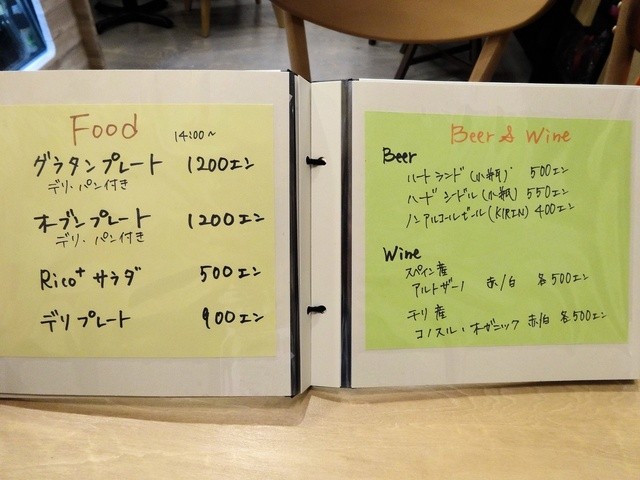 Food
14:00～
グラタンプレート 1200エン
デリ・パン付き
オーブンプレート 1200エン
デリ・パン付き
Rico+ サラダ 500エン
デリプレート 900エン
Beer & Wine
Beer
ハートランド(小瓶) 500エン
ハードシードル(小瓶) 550エン
ノンアルコールビール(KIRIN) 400エン
Wine
スペイン産
アルトザーノ 赤/白 各500エン
チリ産
コノスル・オーガニック 赤/白 各500エン